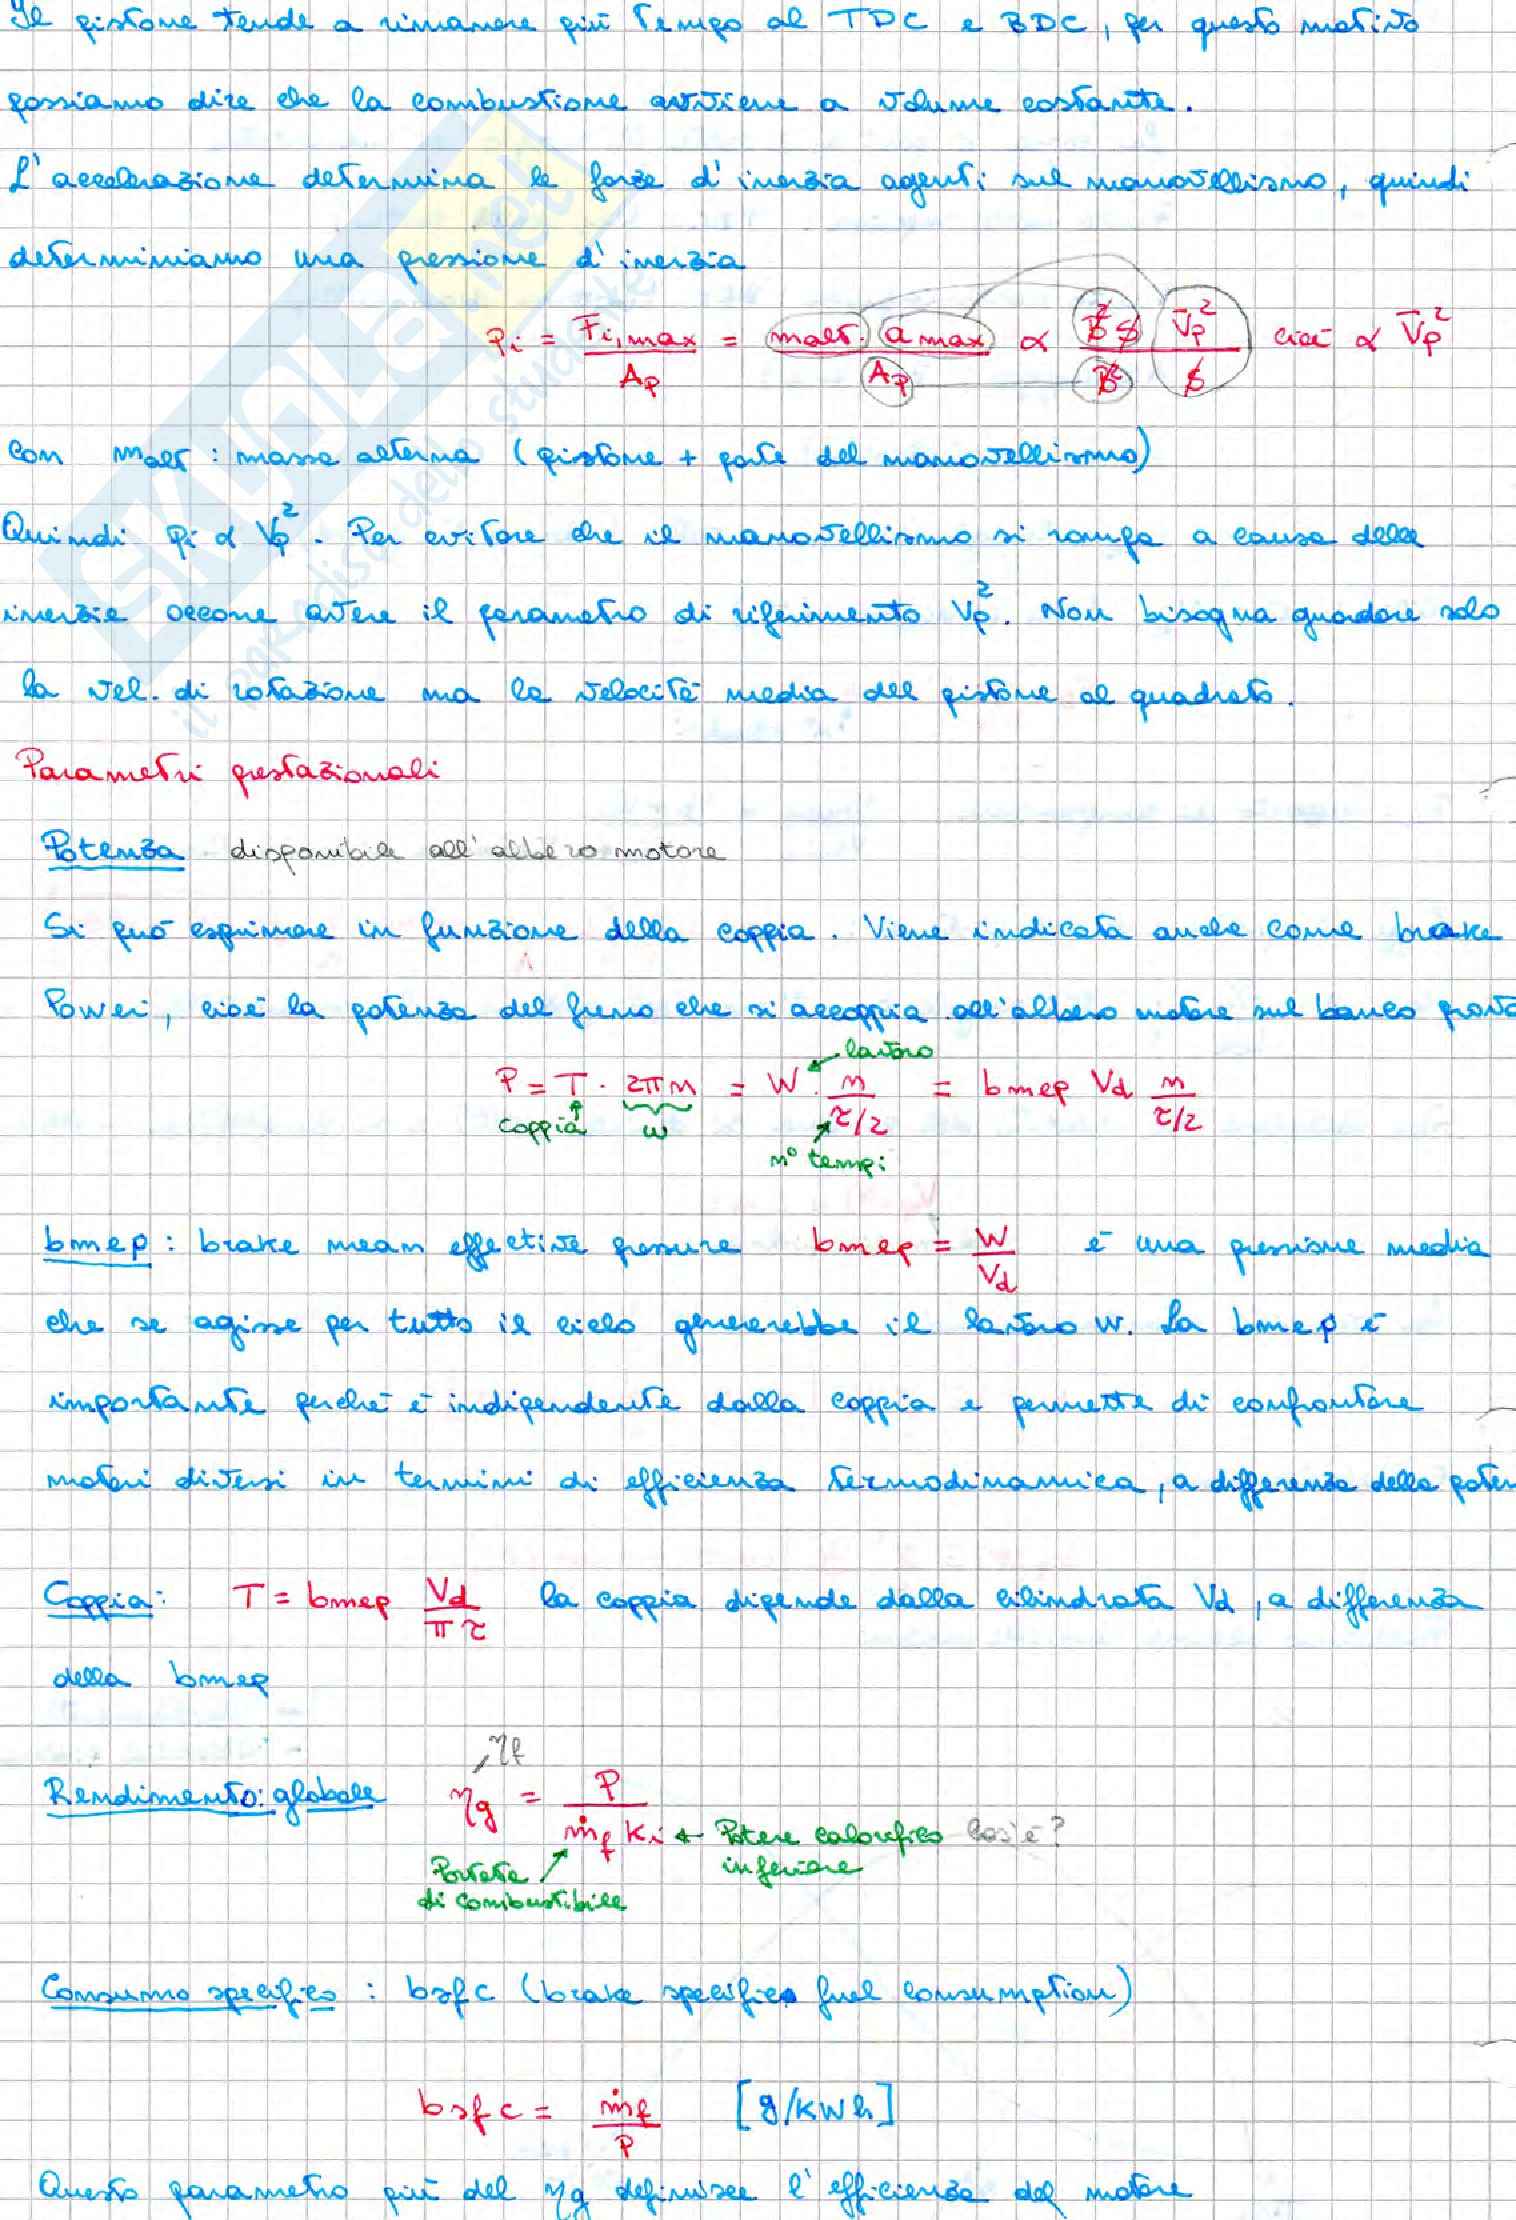 Il pistone tende a rimanere più tempo al TDC e BDC, per questo motivo
possiamo dire che la combustione avviene a volume costante.
L'accelerazione determina le forze d'inerzia agenti sul manovellismo, quindi
determiniamo una pressione d'inerzia
Pi = Fi,max / Ap = malt. a max / Ap ∝ B² S / B² V̄p² / S cioè ∝ V̄p²
con malt : massa alterna (pistone + parte del manovellismo)
Quindi pi ∝ V̄p². Per evitare che il manovellismo si rompa a causa delle
inerzie occorre avere il parametro di riferimento V̄p². Non bisogna guardare solo
la vel. di rotazione ma la velocità media del pistone al quadrato.
Parametri prestazionali
Potenza disponibile all'albero motore
Si può esprimere in funzione della coppia. Viene indicata anche come brake
Power, cioè la potenza del freno che si accoppia all'albero motore sul banco prova
P = T · 2πn = W · n / τ/2 = bmep Vd n / τ/2
lavoro
coppia ω
n° tempi
bmep : brake mean effective pressure bmep = W / Vd è una pressione media
che se agisse per tutto il ciclo genererebbe il lavoro W. La bmep è
importante perché è indipendente dalla coppia e permette di confrontare
motori diversi in termini di efficienza termodinamica, a differenza della poten
Coppia: T = bmep Vd / πτ la coppia dipende dalla cilindrata Vd, a differenza
della bmep
ηf
Rendimento: globale ηg = P / ṁf Ki ← Potere calorifico inferiore cos'è?
Portata
di combustibile
Consumo specifico : bsfc (brake specific fuel consumption)
bsfc = ṁf / P [g/kWh]
Questo parametro più del ηg definisce l'efficienza del motore
SKUOLA.net
il paradiso dello studente